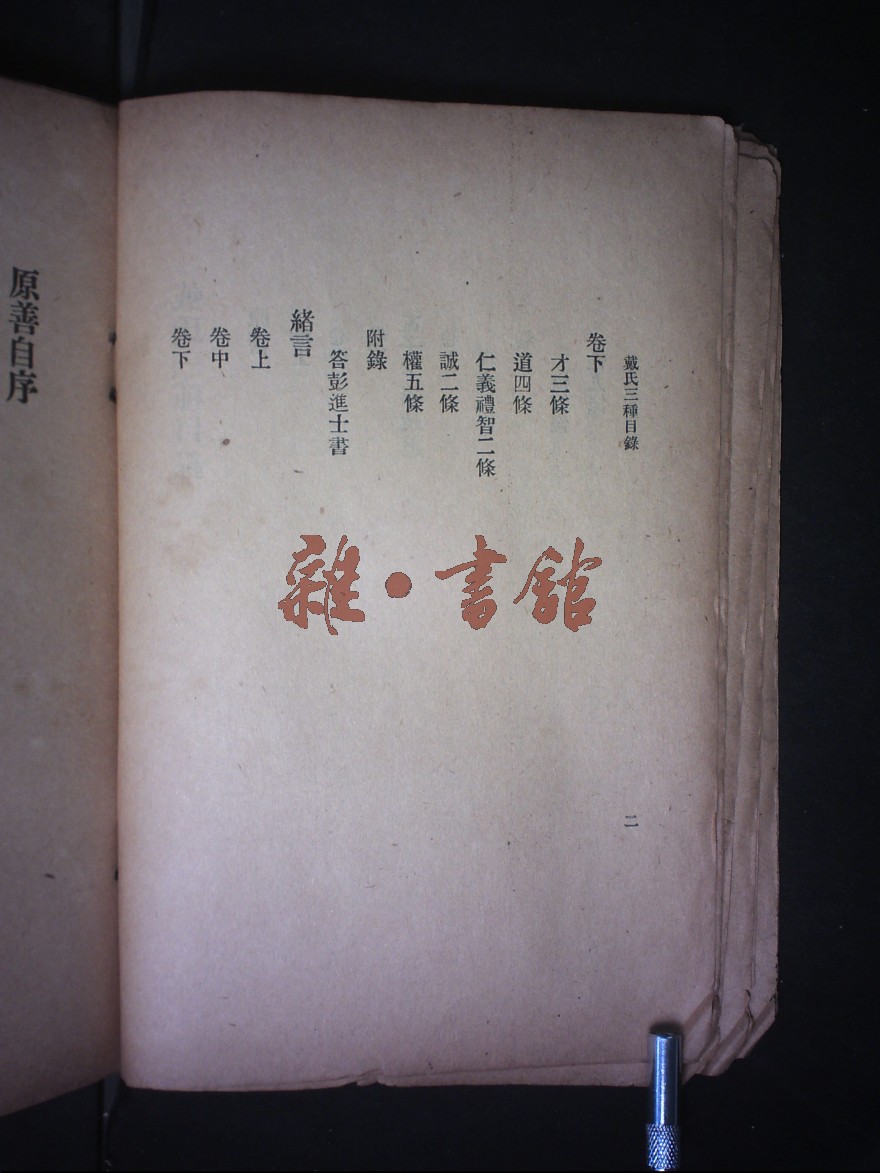 戴氏三種目錄
二
卷下
才三條
道四條
仁義禮智二條
誠二條
權五條
附錄
答彭進士書
緒言
卷上
卷中
卷下
原善自序
雜·書館